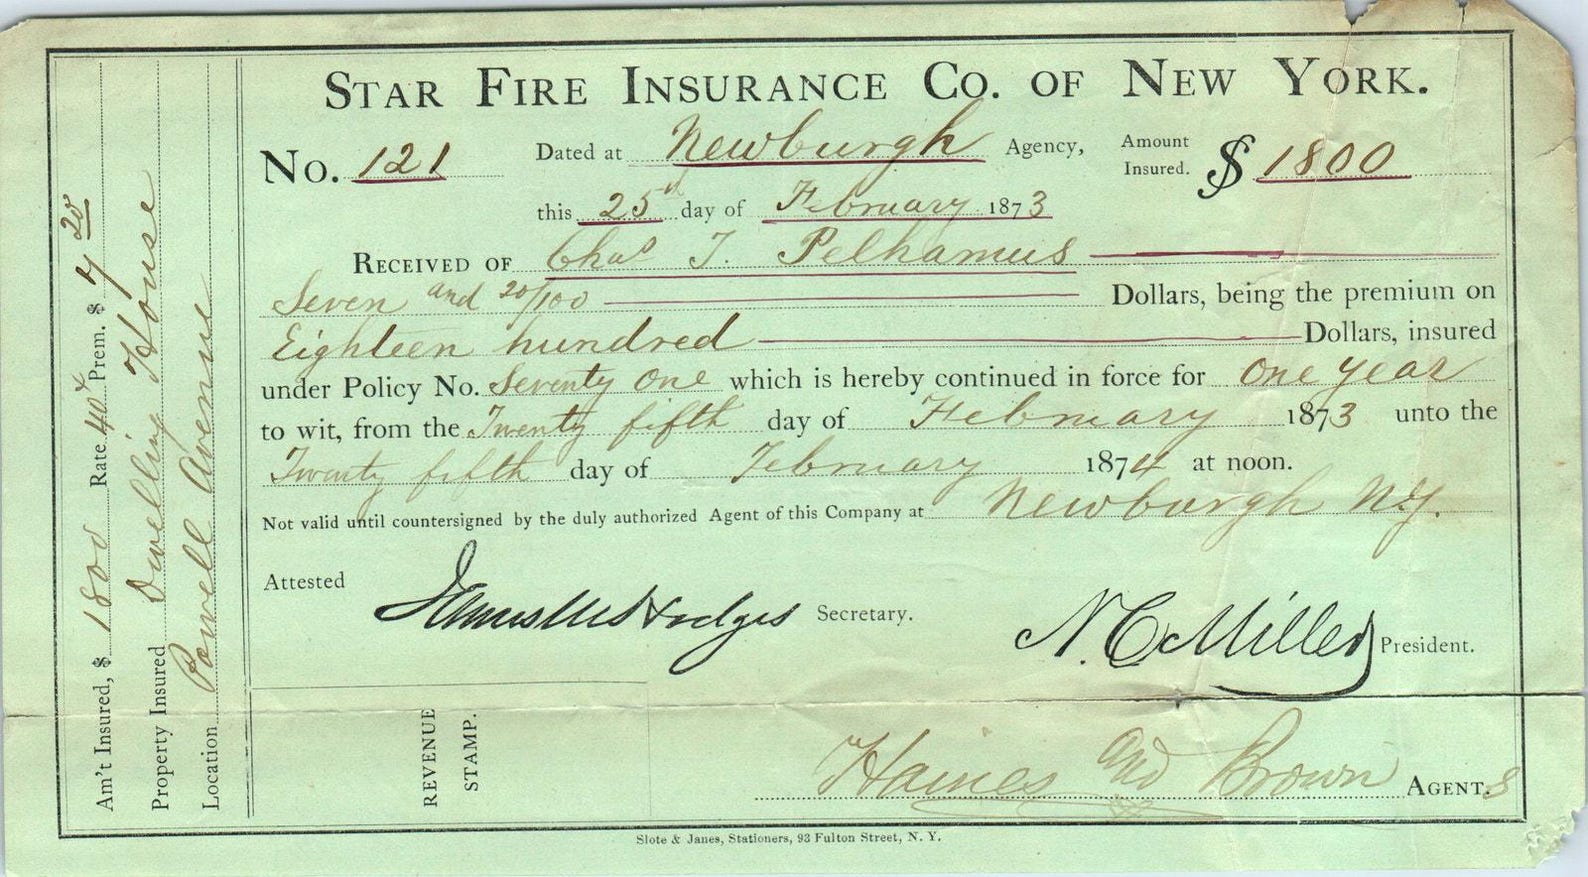 STAR FIRE INSURANCE CO. OF NEW YORK.
No. 121 Dated at Newburgh Agency, Amount Insured. $ 1800
this 25th day of February 1873
RECEIVED OF Chas T. Pelhamus
Seven and 20/100 Dollars, being the premium on
Eighteen hundred Dollars, insured
under Policy No. Seventy One which is hereby continued in force for One Year
to wit, from the Twenty fifth day of February 1873 unto the
Twenty fifth day of February 1874 at noon.
Not valid until countersigned by the duly authorized Agent of this Company at Newburgh N.Y.
Attested Hodges Secretary.
N. C. Miller President.
REVENUE
STAMP.
Haines and Brown AGENT.s
Am't Insured, $ 1800 Rate 40c Prem. $ 7 20
Property Insured Dwelling House
Location Powell Avenue
Slote & Janes, Stationers, 93 Fulton Street, N. Y.